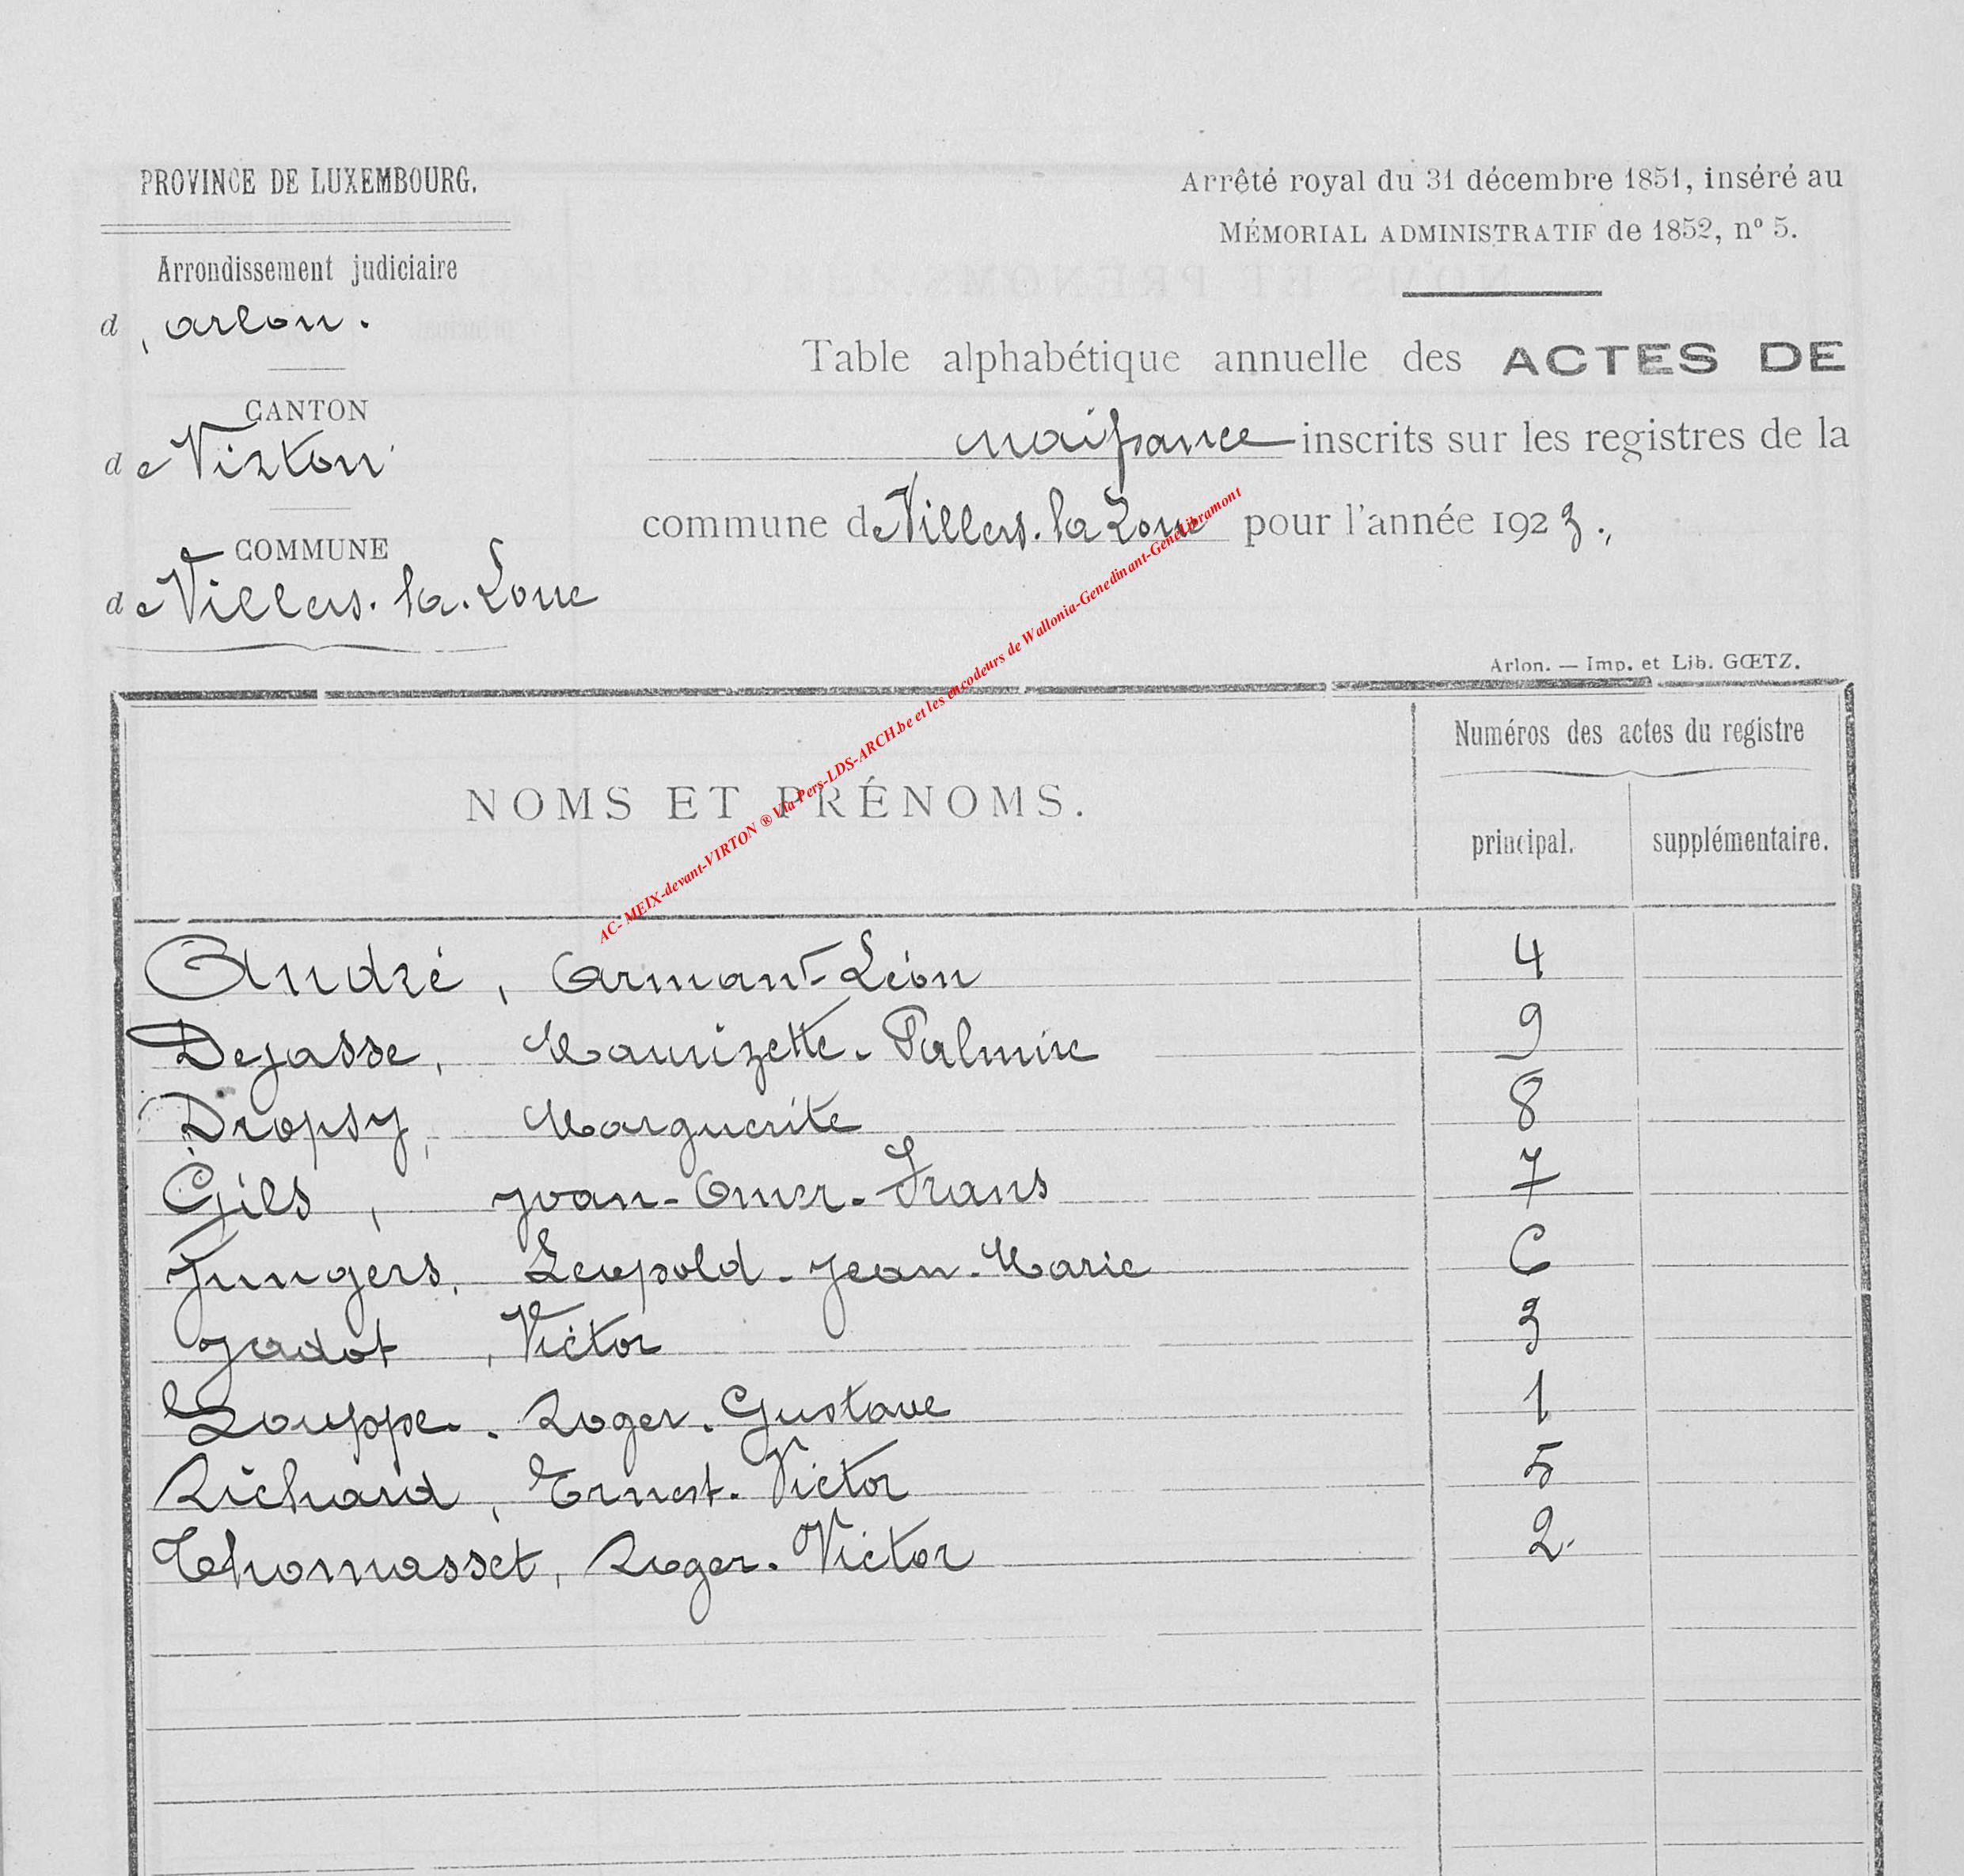 PROVINCE DE LUXEMBOURG.
Arrondissement judiciaire
d'arlon.
CANTON
de Virton
COMMUNE
de Villers-la-Loue
Arrêté royal du 31 décembre 1851, inséré au
MÉMORIAL ADMINISTRATIF de 1852, nº 5.
Table alphabétique annuelle des ACTES DE
naissance inscrits sur les registres de la
commune de Villers-la Loue pour l'année 1923.
Arlon. — Imp. et Lib. GŒTZ.
AC- MEIX-devant-VIRTON ® Via Pers-LDS-ARCH.be et les encodeurs de Wallonia-Genedinant-GeneLibramont
NOMS ET PRÉNOMS.
Numéros des actes du registre
principal. supplémentaire.
André, Armant-Léon 4
Dejasse, Maurizette-Palmire 9
Dropsy, Marguerite 8
Gils, yvan-Omer-Frans 7
Jungers, Leopold-jean-Marie 6
jadot, Victor 3
Louppe. Roger. Gustave 1
Richard, Ernest. Victor 5
Thomasset, Roger. Victor 2.